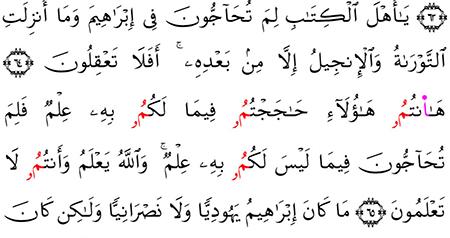 ﴿٦٣﴾ يَٰٓأَهۡلَ ٱلۡكِتَٰبِ لِمَ تُحَآجُّونَ فِىٓ إِبۡرَٰهِيمَ وَمَآ أُنزِلَتِ
ٱلتَّوۡرَىٰةُ وَٱلۡإِنجِيلُ إِلَّا مِنۢ بَعۡدِهِۦٓۚ أَفَلَا تَعۡقِلُونَ ﴿٦٤﴾
هَٰٓا۬نتُمُۥ هَٰٓؤُلَآءِ حَٰجَجۡتُمُۥ فِيمَا لَكُمُۥ بِهِۦ عِلۡمٌ فَلِمَ
تُحَآجُّونَ فِيمَا لَيۡسَ لَكُمُۥ بِهِۦ عِلۡمٌۚ وَٱللَّهُ يَعۡلَمُ وَأَنتُمُۥ لَا
تَعۡلَمُونَ ﴿٦٥﴾ مَا كَانَ إِبۡرَٰهِيمُ يَهُودِيًّا وَلَا نَصۡرَانِيًّا وَلَٰكِن كَانَ